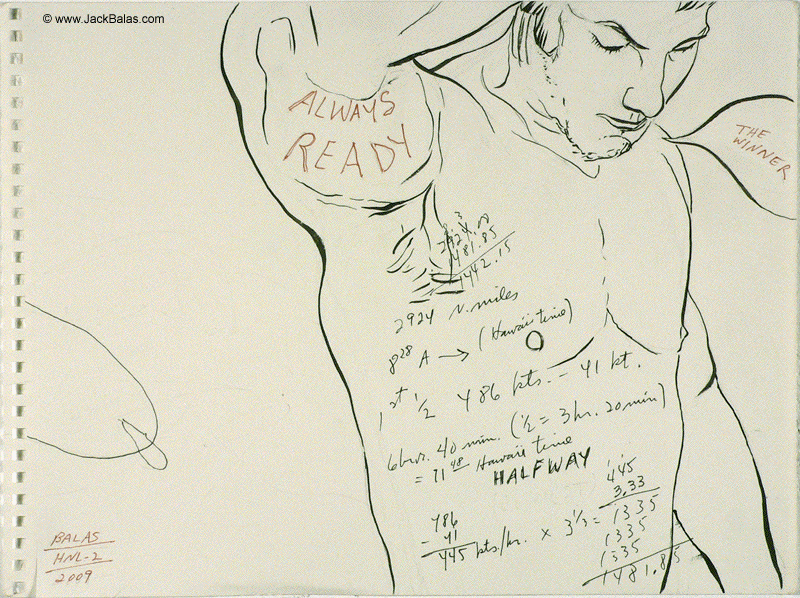 © www.JackBalas.com
ALWAYS
READY
THE
WINNER
3
2924.00
1481.85
1442.15
2924 N. miles
8²⁸ A → (Hawaii time)
1st ½ 486 kts. - 41 kt.
6 hrs. 40 min. (½ = 3 hr. 20 min)
= 11⁴⁸ Hawaii time
HALFWAY
486
- 41
445 kts/hr. × 3⅓ =
445
3.33
1335
1335
1335
1481.85
BALAS
HNL-2
2009